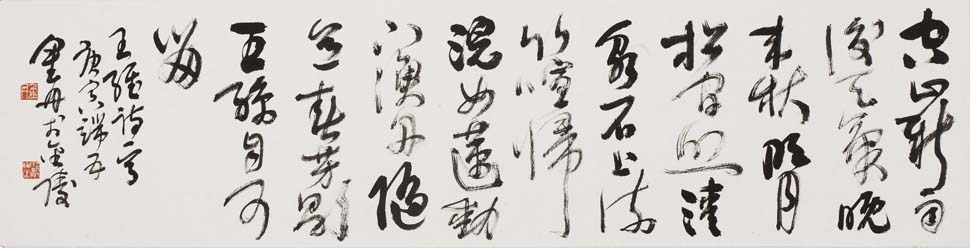 空山新雨
後天氣晚
来秋明月
松间照清
泉石上流
竹喧歸
浣女蓮動
下漁舟隨
意春芳歇
王孫自可
留
王維诗
庚寅端午
於金陵